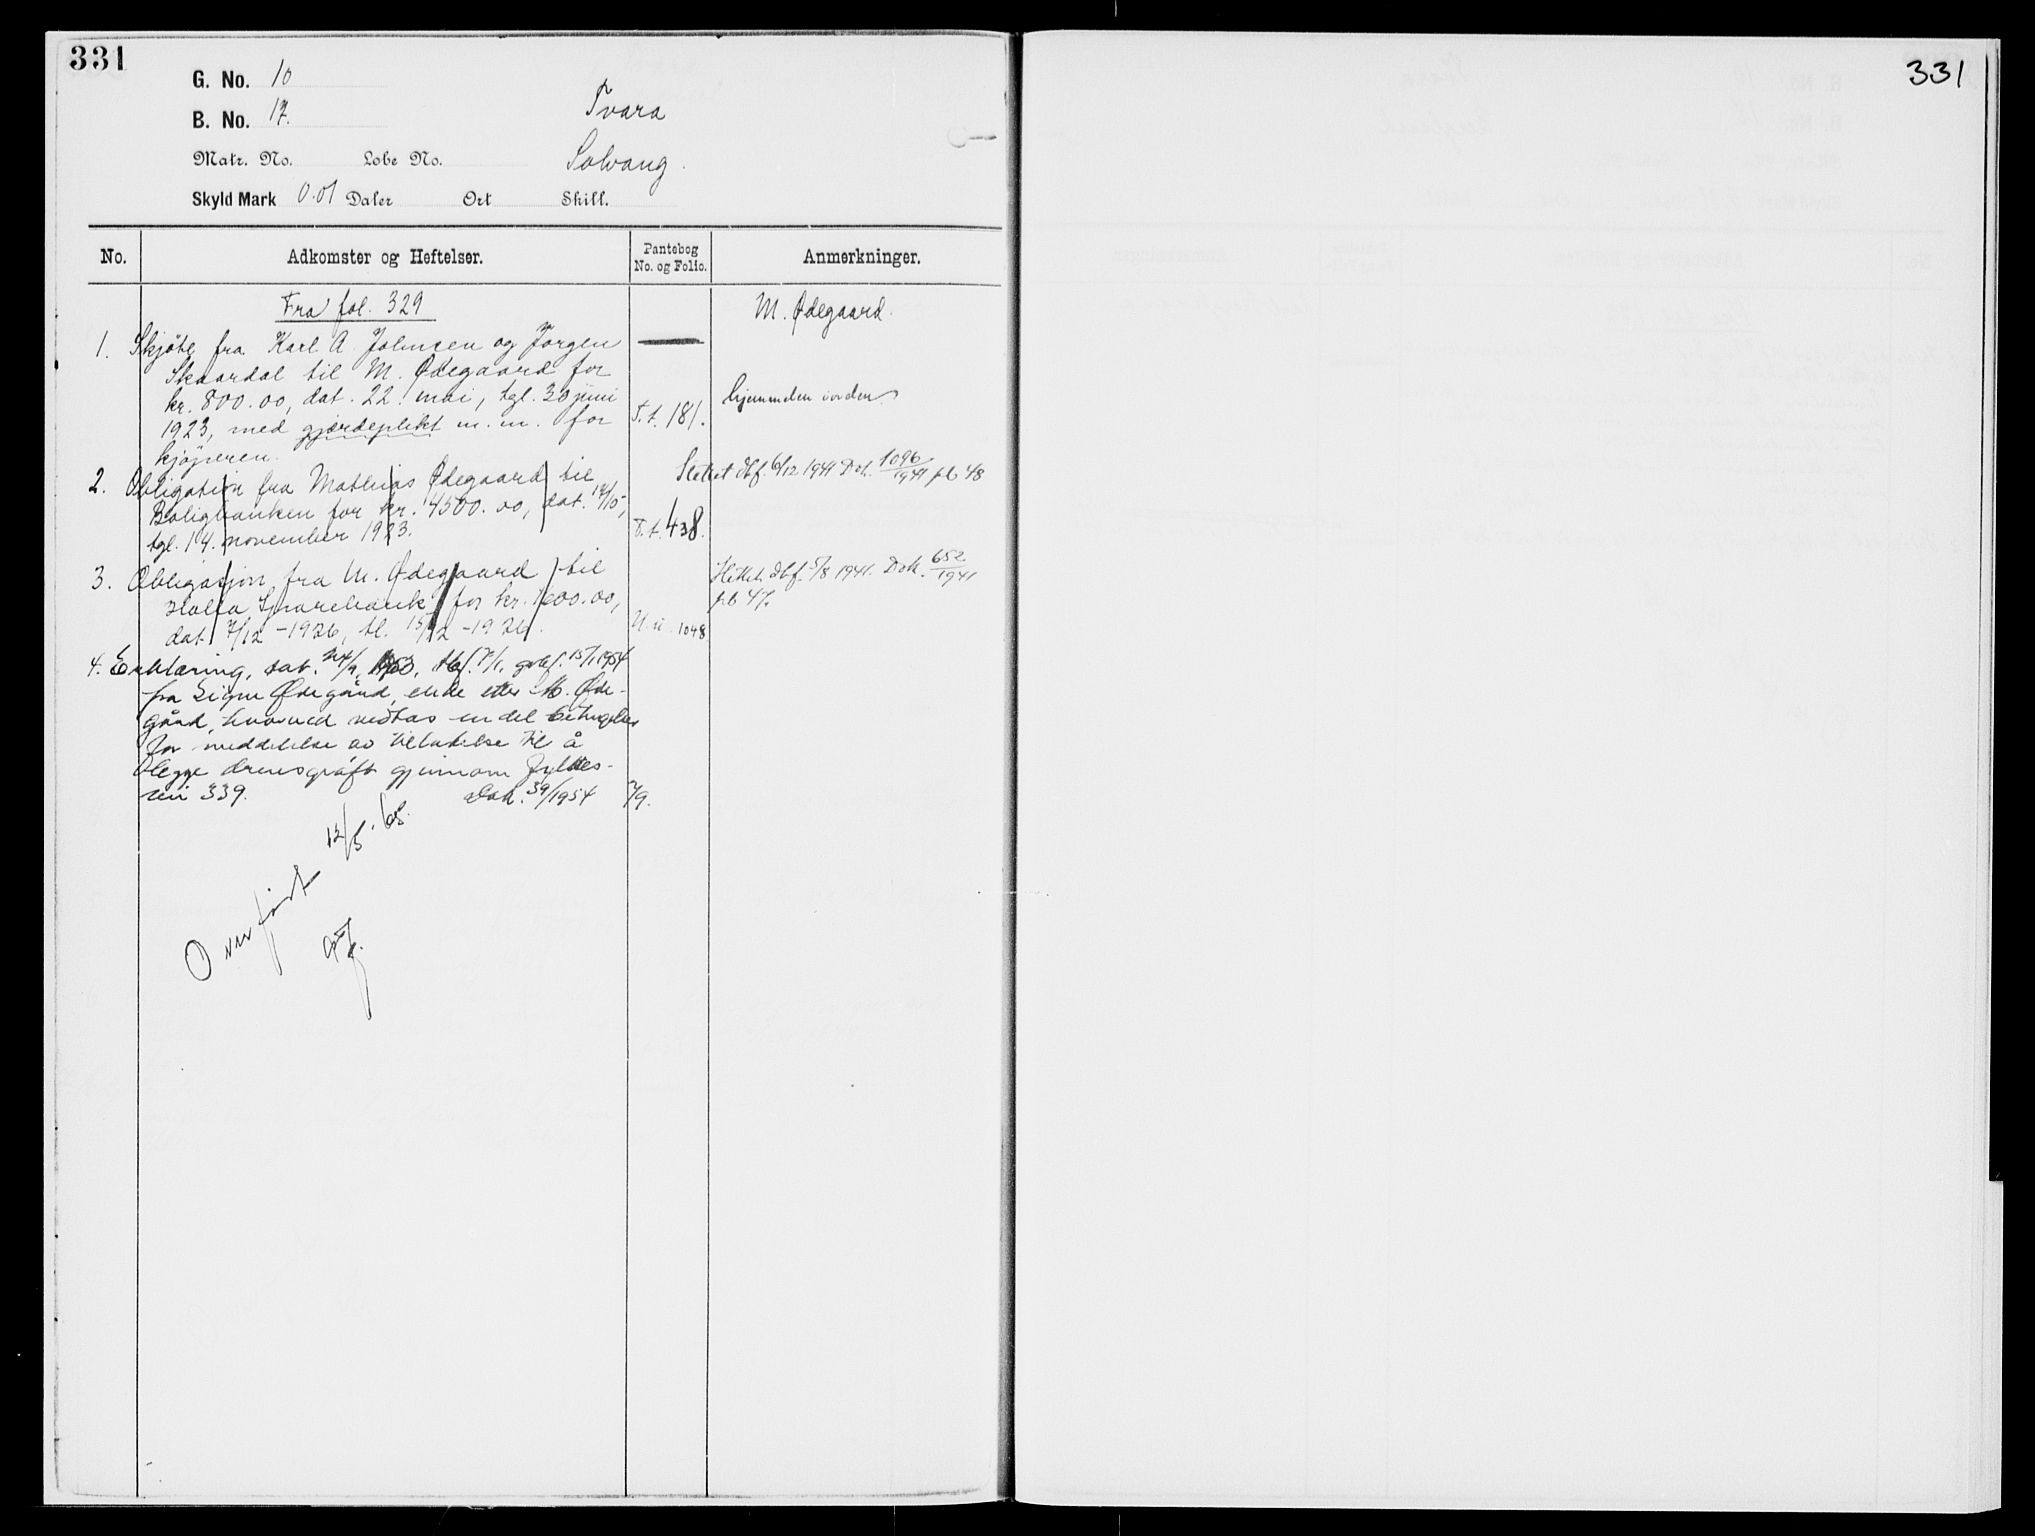 331
G. No. 10
B. No. 17.
Tvara
Matr. No. Løbe No.
Solvang.
Skyld Mark 0.01 Daler Ort Skill.
No. Adkomster og Heftelser. Pantebog No. og Folio. Anmerkninger.
Fra fol. 329
M. Ødegaard.
1. Skjöte fra Karl A. Johnsen og Jörgen
Skaardal til M. Ødegaard for
kr. 800.00, dat. 22. mai, tgl. 30 juni
hjemmelen i orden
1923, med gjærdeplikt m. m. for T.t. 181.
kjöperen.
2. Obligation fra Mathias Ødegaard til
Slettet dbf. 6/12 1941 Dok. 1096/1941 pb 48
Boligbanken for kr. 4500.00, dat. 17/10,
tgl. 14. november 1923. T.t. 438.
3. Obligasjon fra M. Ødegaard til
Slettet dbf. 5/8 1941. Dok. 652/1941
Holla Sparebank for kr. 1600.00,
pb 47.
dat. 7/12 - 1926, tl. 15/12 - 1926. U.u. 1048
4. Erklæring, dat. 24/9 1953, dbf. 7/1, gbf. 15/1 1954
fra Signe Ødegård, enke etter M. Øde-
gård, hvorved vedtas en del betingelser
for meddelelse av tillatelse til å
legge drensgrøft gjennom fylkes-
vei 339. Dok. 39/1954 79.
Overført 12/5. 68.
331